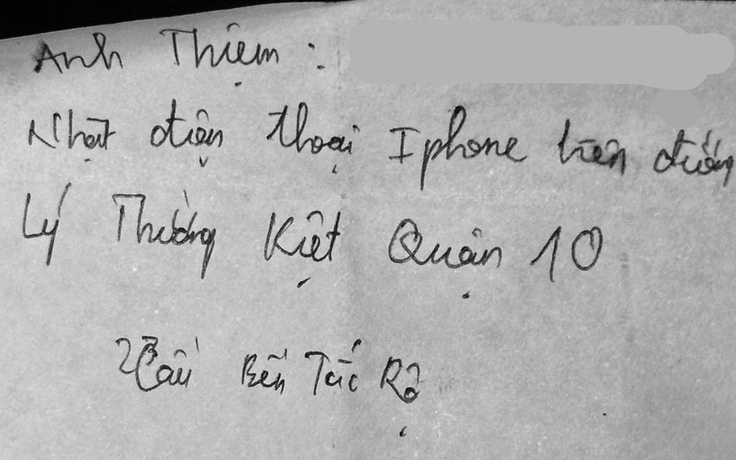 Anh Thiệm :
Nhặt điện thoại Iphone trên đường
Lý Thường Kiệt Quận 10
Cầu Bến Tắc Rộ